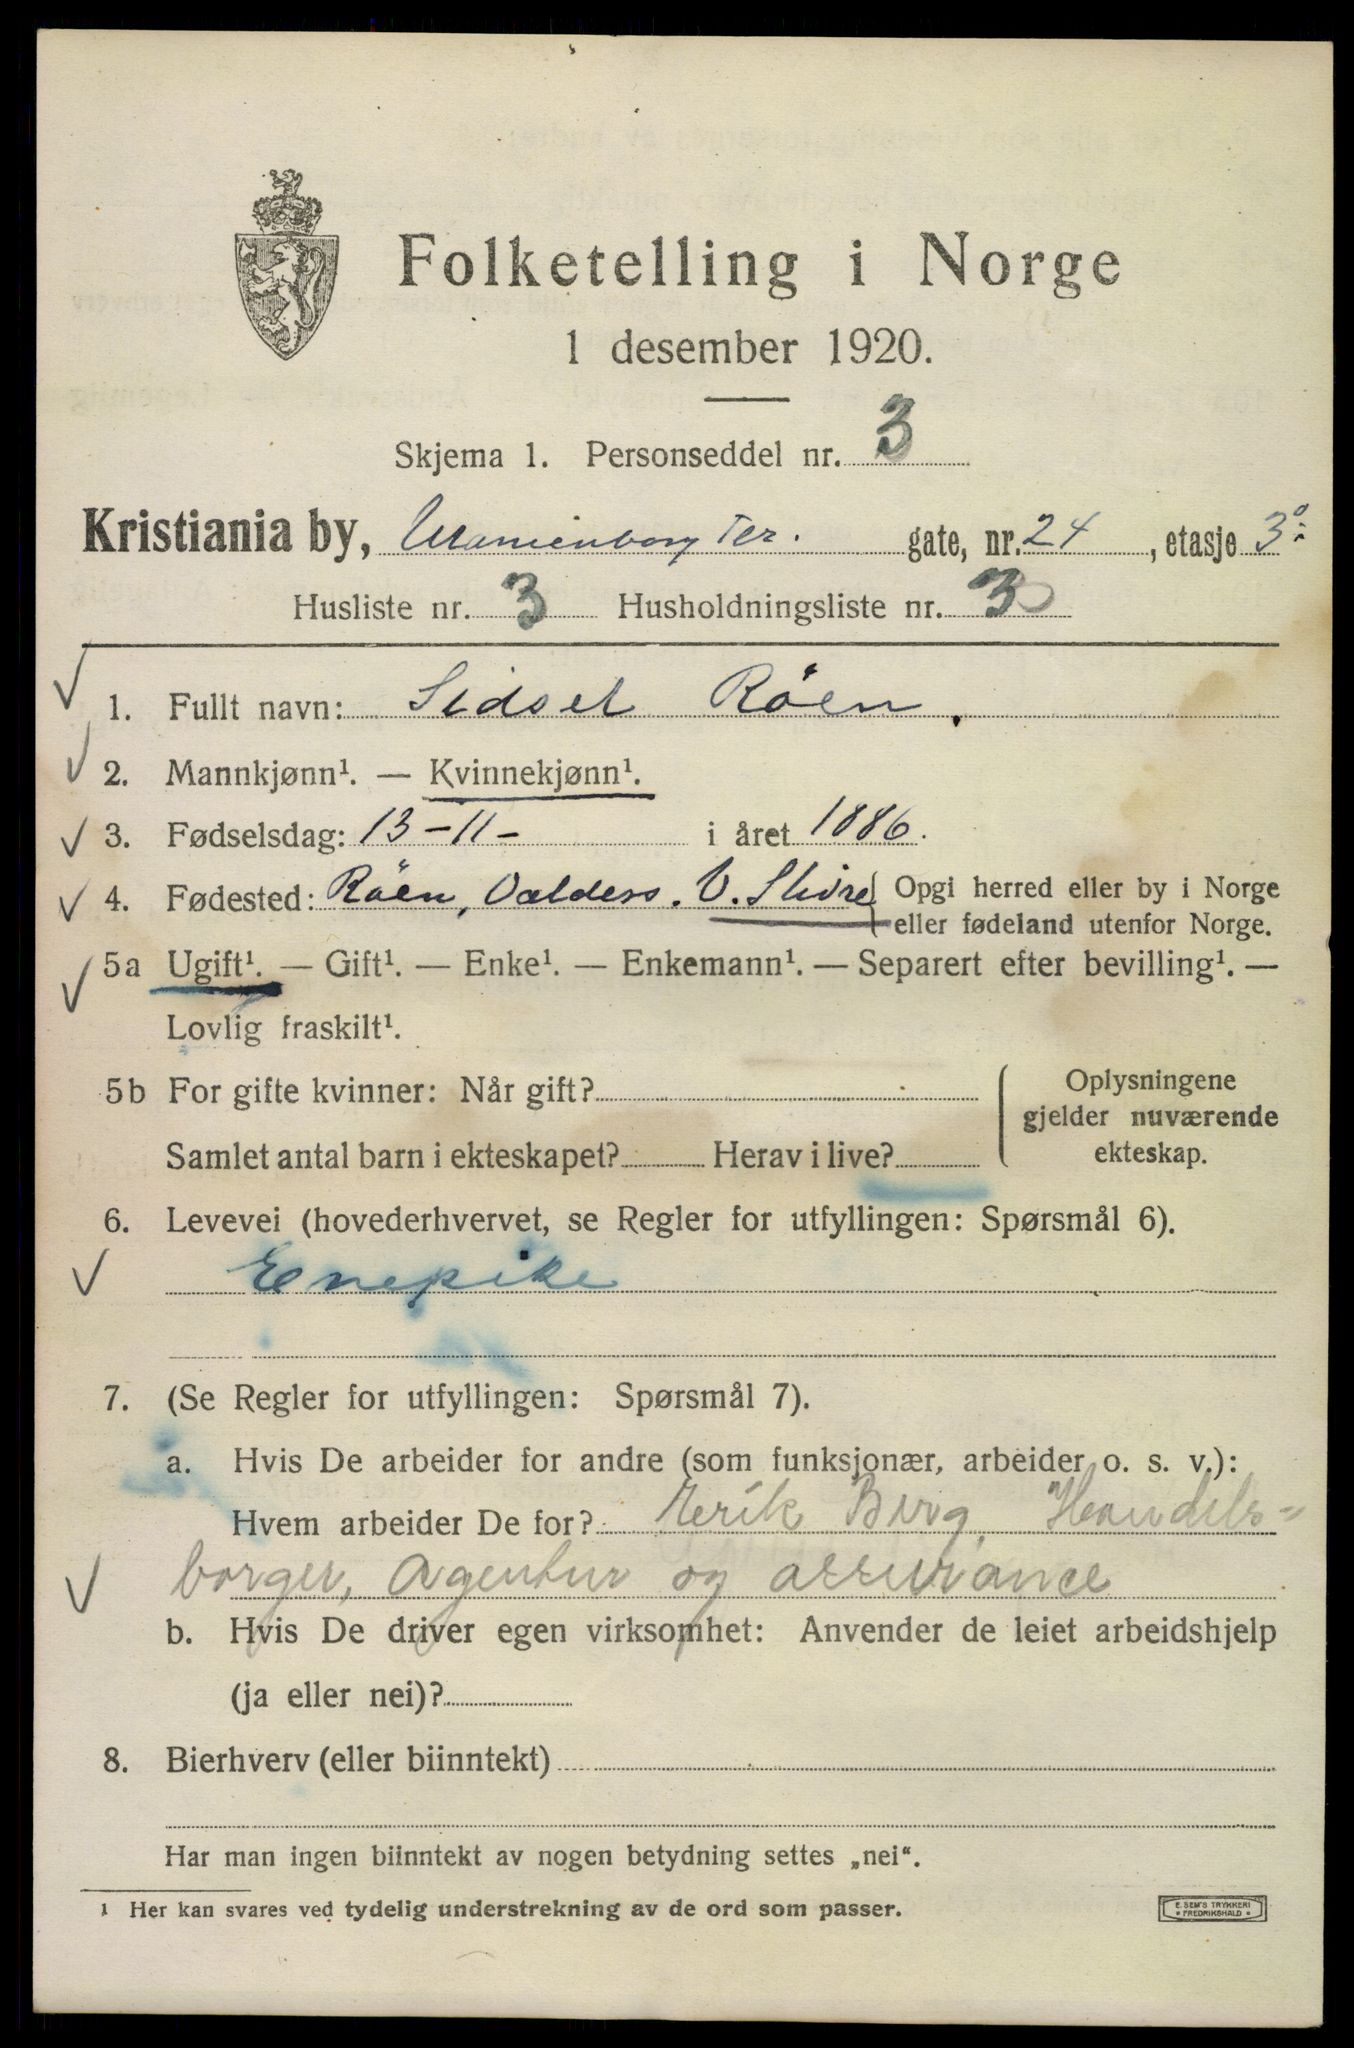 Folketelling i Norge
1 desember 1920.
Skjema 1. Personseddel nr. 3
Kristiania by, Uranienborg Ter. gate, nr. 24, etasje 3º
Husliste nr. 3 Husholdningsliste nr. 3
1. Fullt navn: Sidsel Röen.
2. Mannkjønn¹. — Kvinnekjønn¹.
3. Fødselsdag: 13-11- i året 1886.
4. Fødested: Röen, Valders. V. Slidre { Opgi herred eller by i Norge
eller fødeland utenfor Norge.
5a Ugift¹. — Gift¹. — Enke¹. — Enkemann¹. — Separert efter bevilling¹. —
Lovlig fraskilt¹.
5b For gifte kvinner: Når gift?
Samlet antal barn i ekteskapet? Herav i live?
Oplysningene
gjelder nuværende
ekteskap.
6. Levevei (hovederhvervet, se Regler for utfyllingen: Spørsmål 6).
Enepike
7. (Se Regler for utfyllingen: Spørsmål 7).
a. Hvis De arbeider for andre (som funksjonær, arbeider o. s. v.):
Hvem arbeider De for? Erik Berg, Handels-
borger, Agentur og assurance
b. Hvis De driver egen virksomhet: Anvender de leiet arbeidshjelp
(ja eller nei)?
8. Bierhverv (eller biinntekt)
Har man ingen biinntekt av nogen betydning settes „nei“.
1 Her kan svares ved tydelig understrekning av de ord som passer.
E. SEM'S TRYKKERI
* FREDRIKSHALD *